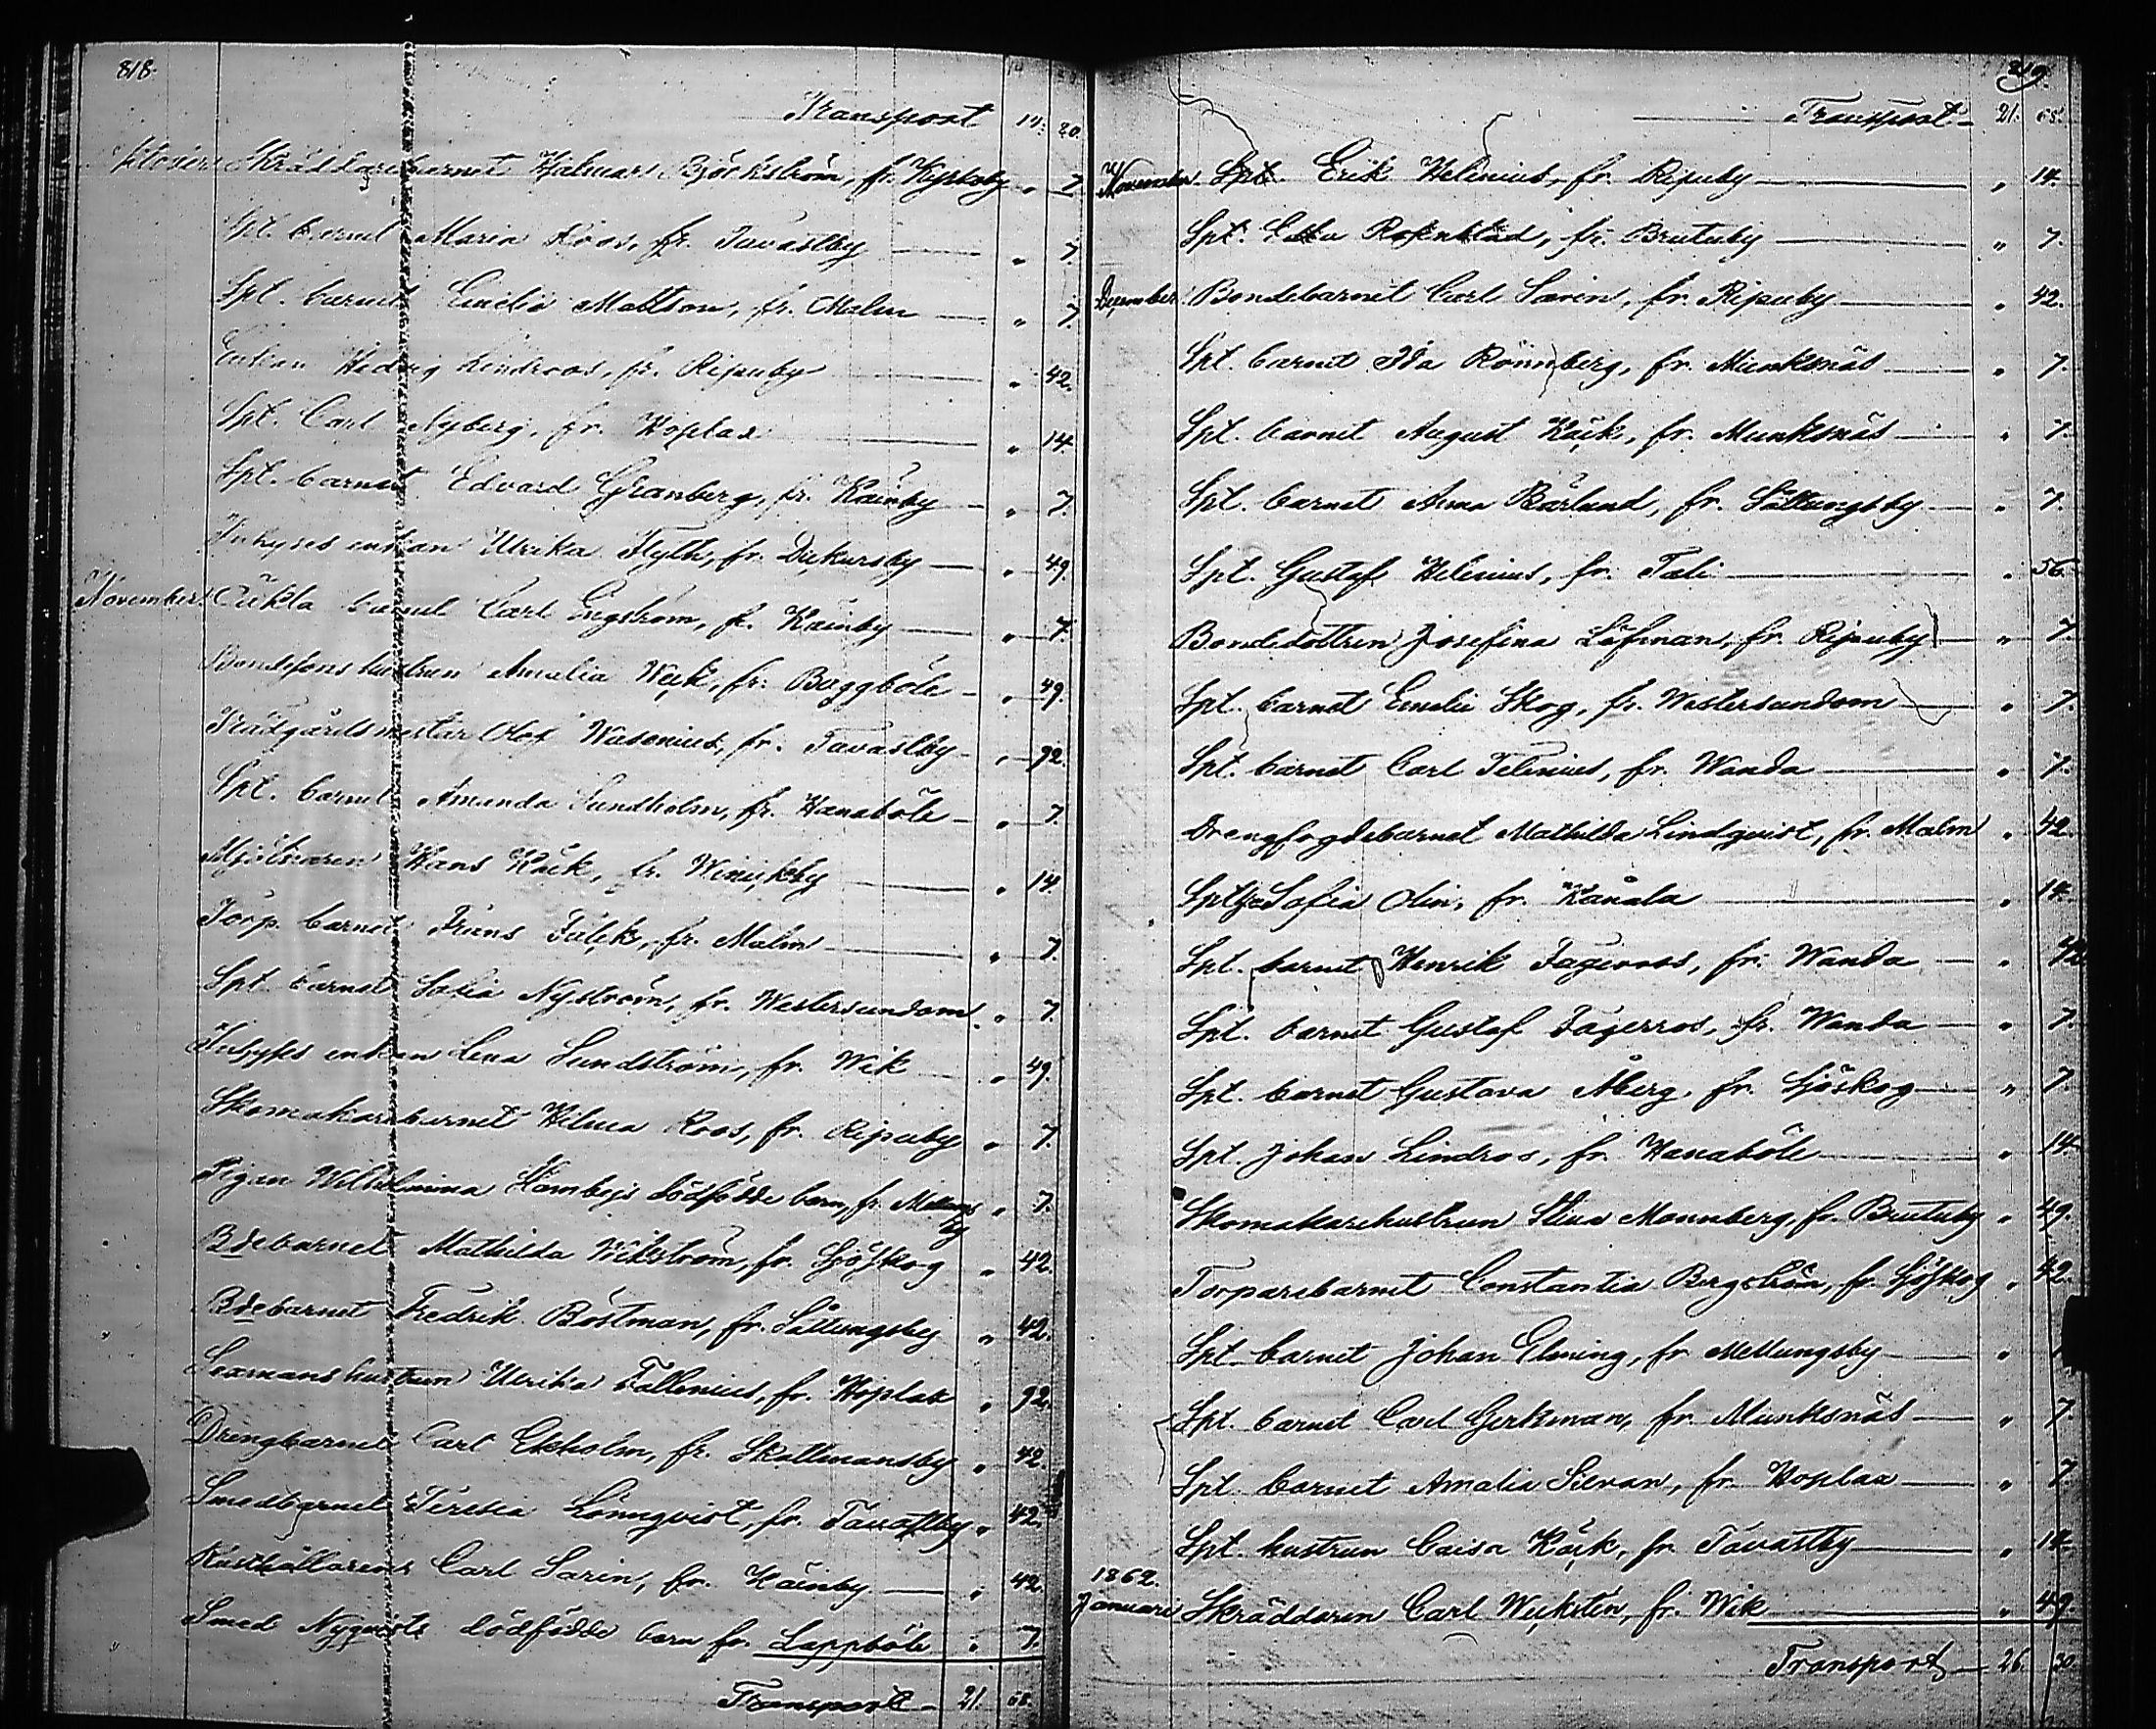 818.
Transport 14. 20.
October Skräddarebarnet Hjalmar Björkström, fr. Kyrkoby „ 7.
Spt. barnet Maria Roos, fr. Tavastby „ 7.
Spt. barnet Emelie Mattson, fr. Malm „ 7.
Enkan Hedvig Lindroos, fr. Ripuby „ 42.
Spt. Carl Nyberg, fr. Hoplax „ 14.
Spt. barnet Edvard Granberg, fr. Kånby „ 7.
Inhyses enkan Ulrika Flyth, fr. Dickursby „ 49.
November barnet Carl Engström, fr. Kånby „ 7.
Bondesons hustrun Amalia Weck, fr. Baggböle „ 49.
Trädgårdsmästar Olof Wasenius, fr. Tavastby „ 92.
Spt. barnet Amanda Sundholm, fr. Hanaböle „ 7.
Mjölnaren Hans Käck, fr. Winickby „ 14.
Torp. barnet Frans Falck, fr. Malm „ 7.
Spt. barnet Sofia Nyström, fr. Westersundom „ 7.
Inhyses enkan Lena Sundström, fr. Wik „ 49.
Skomakarebarnet Hilma Roos, fr. Ripuby „ 7.
Pigan Wilhelmina dödfödde barn, fr. Mellungsby „ 7.
Bdebarnet Mathilda Wikström, fr. Sjöskog „ 42.
Bdebarnet Fredrik Böstman, fr. Sottungsby „ 42.
Sexmans hustrun Ulrika Fallenius, fr. Hoplax „ 92.
Drengbarnet Carl Ekholm, fr. Skattmansby „ 42
Smedbarnet Teresia Lönnqvist, fr. Tavastby „ 42.
Rusthållaren Carl Sarin, fr. Kånby „ 42.
Smed Nyqvists dödfödde barn fr. Lappböle „ 7.
Transport 21. 68.
819.
Transport 21. 68.
November Spt. Erik Helenius, fr. Ripuby „ 14.
Spt. Rosenblad, fr. Brutuby „ 7.
December Bondebarnet Carl Saren, fr. Ripuby „ 42.
Spt. barnet Ida Rönnberg, fr. Munksnäs „ 7.
Spt. barnet August Käck, fr. Munksnäs „ 7.
Spt. barnet Anna Bärlund, fr. Sottungsby „ 7.
Spt. Gustaf Helenius, fr. Tali „ 56.
Bondedottren Josefina Löfman, fr. Ripuby „ 7
Spt. barnet Emelie Skog, fr. Westersundom „ 7.
Spt. barnet Carl Felenius, fr. Wanda „ 7.
Drengfogdebarnet Mathilda Lindqvist, fr. Malm „ 42.
Sptje Sofia Olin, fr. Kånala „ 14.
Spt. barnet Henrik Fageroos, fr. Wanda „ 42
Spt. barnet Gustaf Fagerros, fr. Wanda „ 7.
Spt. barnet Gustava Åberg, fr. Sjöskog „ 7
Spt. Johan Lindros, fr. Hanaböle „ 14
Skomakarehustrun Stina Monnberg, fr. Brutuby „ 49.
Torparebarnet Constantia Bergström, fr. Sjöskog „ 42.
Spt. barnet Johan Elming, fr. Mellungsby „
Spt. barnet Carl Gerkman, fr. Munksnäs „ 7.
Spt. barnet Amalia Sevan, fr. Hoplax „ 7.
Spt. hustrun Caisa Käck, fr. Tavastby „ 14.
1862.
Januari Skräddaren Carl Weckstén, fr. Wik „ 49
Transport 26. 30.